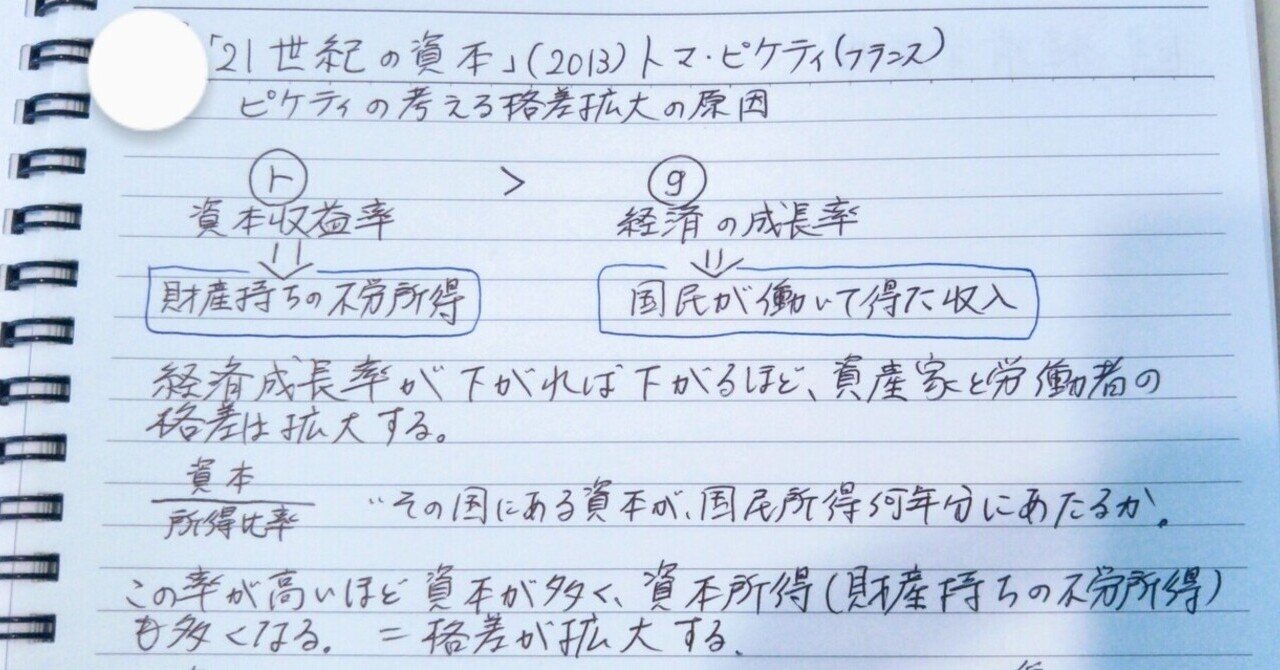 「21世紀の資本」(2013)トマ・ピケティ(フランス)
ピケティの考える格差拡大の原因
r > g
資本収益率 経済の成長率
財産持ちの不労所得 国民が働いて得た収入
経済成長率が下がれば下がるほど、資産家と労働者の
格差は拡大する。
資本
所得比率 “その国にある資本が、国民所得何年分にあたるか。
この率が高いほど資本が多く、資本所得(財産持ちの不労所得)
も多くなる。 = 格差が拡大する。